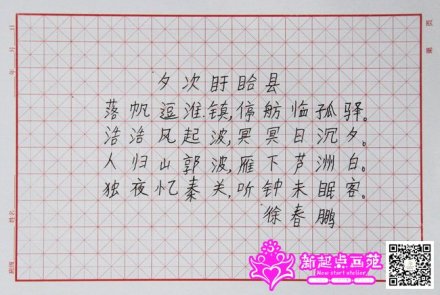 夕次盱眙县
落帆逗淮镇,停舫临孤驿。
浩浩风起波,冥冥日沉夕。
人归山郭波,雁下芦洲白。
独夜忆秦关,听钟未眠客。
徐春鹏
新起点画苑
New start atelier